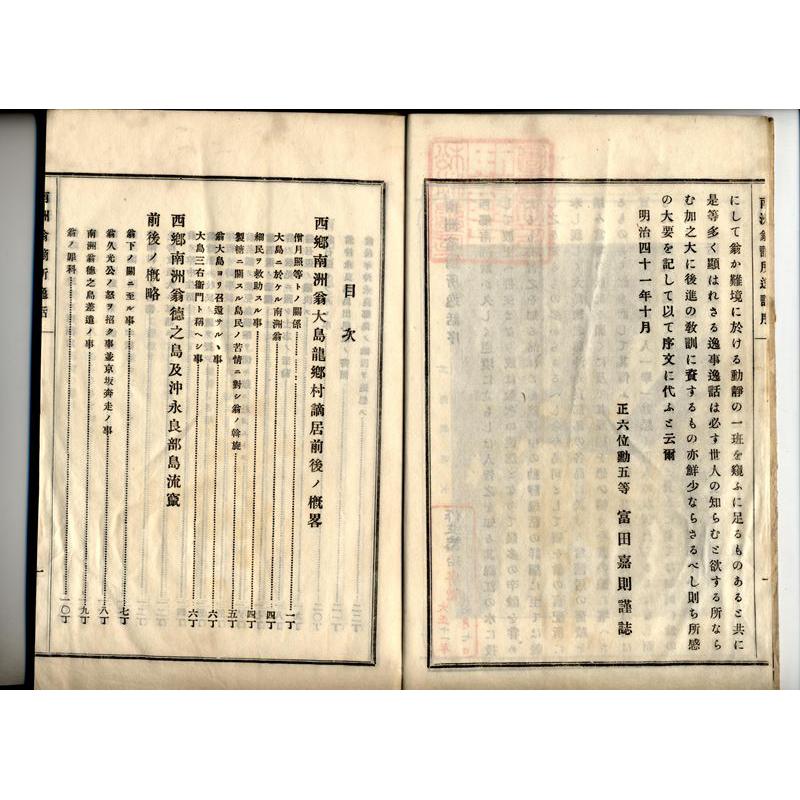 にして翁か難境に於ける動靜の一班を窺ふに足るものあると共に
是等多く顯はれさる逸事逸話は必す世人の知らむと欲する所なら
む加之大に後進の敎訓に資するもの亦鮮少ならさるべし則ち所感
の大要を記して以て序文に代ふと云爾
明治四十一年十月
正六位勳五等 富田嘉則謹誌
目次
西鄕南洲翁大島龍鄕村謫居前後ノ槪畧
僧月照等トノ關係 一丁
大島ニ於ケル南洲翁 四丁
細民ヲ救助スル事 四丁
製糖ニ關スル島民ノ苦情ニ對シ翁ノ斡旋 五丁
翁大島ヨリ召還サルヽ事 六丁
大島三右衞門ト稱ヘシ事 六丁
西鄕南洲翁德之島及沖永良部島流竄
前後ノ槪略
翁下ノ關ニ至ル事 七丁
翁久光公ノ怒ヲ招ク事並京坂奔走ノ事 八丁
南洲翁德之島差遣ノ事 九丁
翁ノ罪科 一〇丁
一